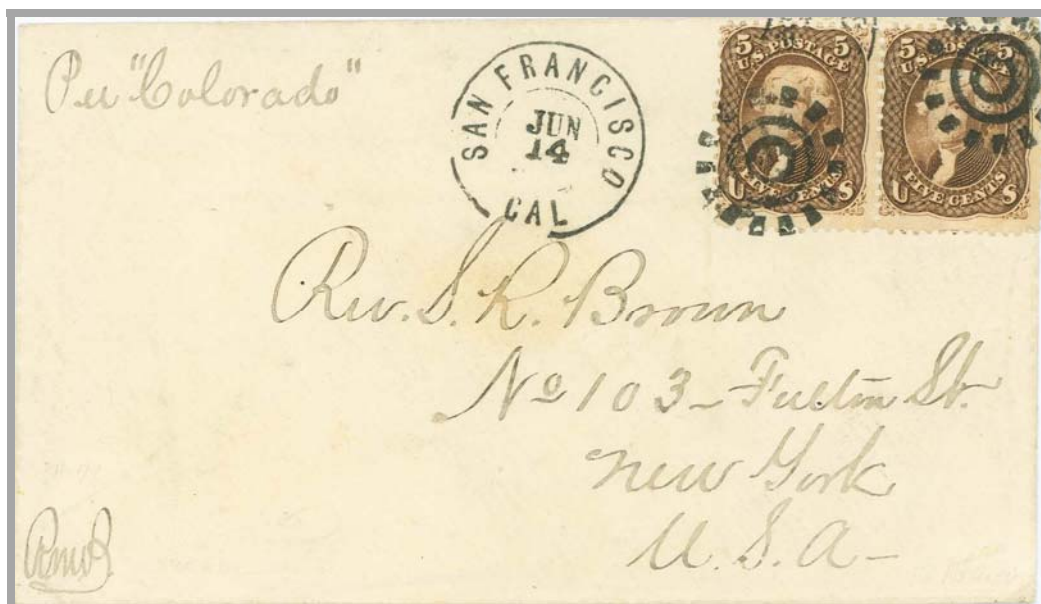 Per "Colorado"
SAN FRANCISCO
JUN
14
CAL
5 5
U.S. POSTAGE
U S
FIVE CENTS
5 5
U.S. POSTAGE
U S
FIVE CENTS
Rev. S. R. Brown
No 103 - Fulton St.
New York
U. S. A -